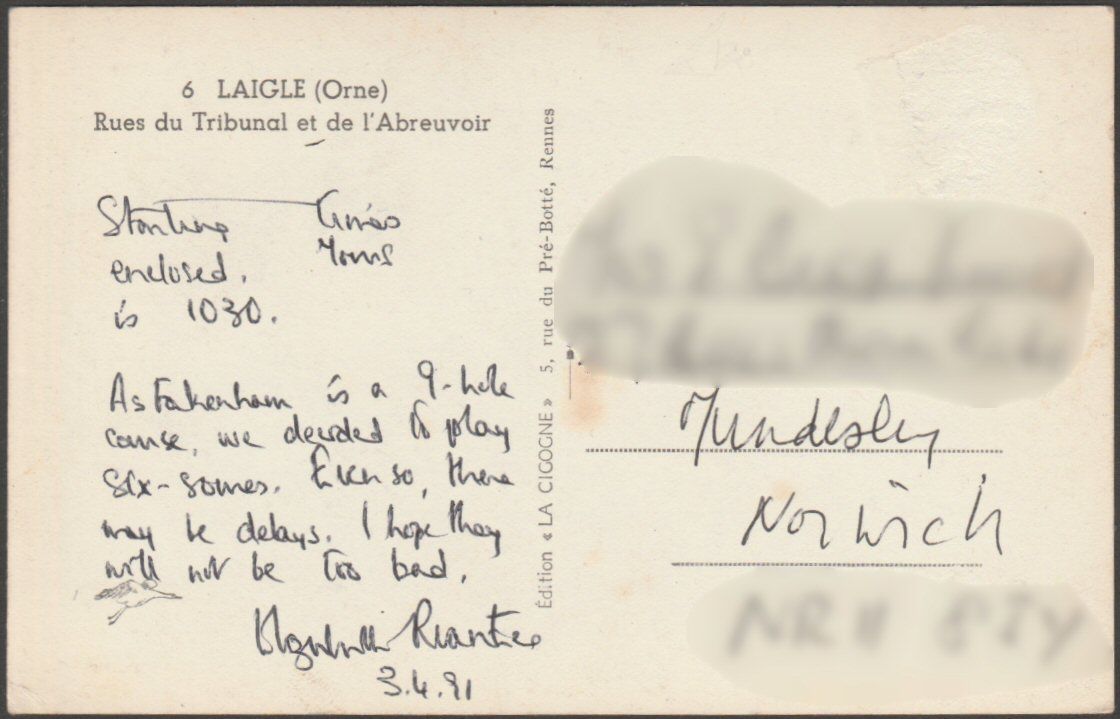 6 LAIGLE (Orne)
Rues du Tribunal et de l'Abreuvoir
Starting times
enclosed. Yours
is 1030.
As Fakenham is a 9-hole
course, we decided to play
six-somes. Even so, there
may be delays. I hope they
will not be too bad.
Elizabeth
3.4.91
Édition « LA CIGOGNE » 5, rue du Pré-Botté, Rennes
Mundesley
Norwich